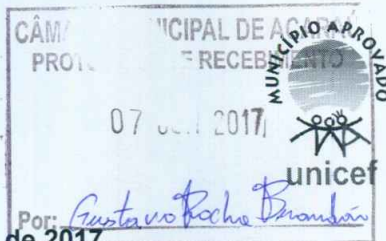 CÂM MUNICIPAL DE ACARAÚ
PROTO E RECEBIMENTO
07 2017
MUNICÍPIO APROVADO
unicef
Por: Gustavo Rocha Brandão
de 2017